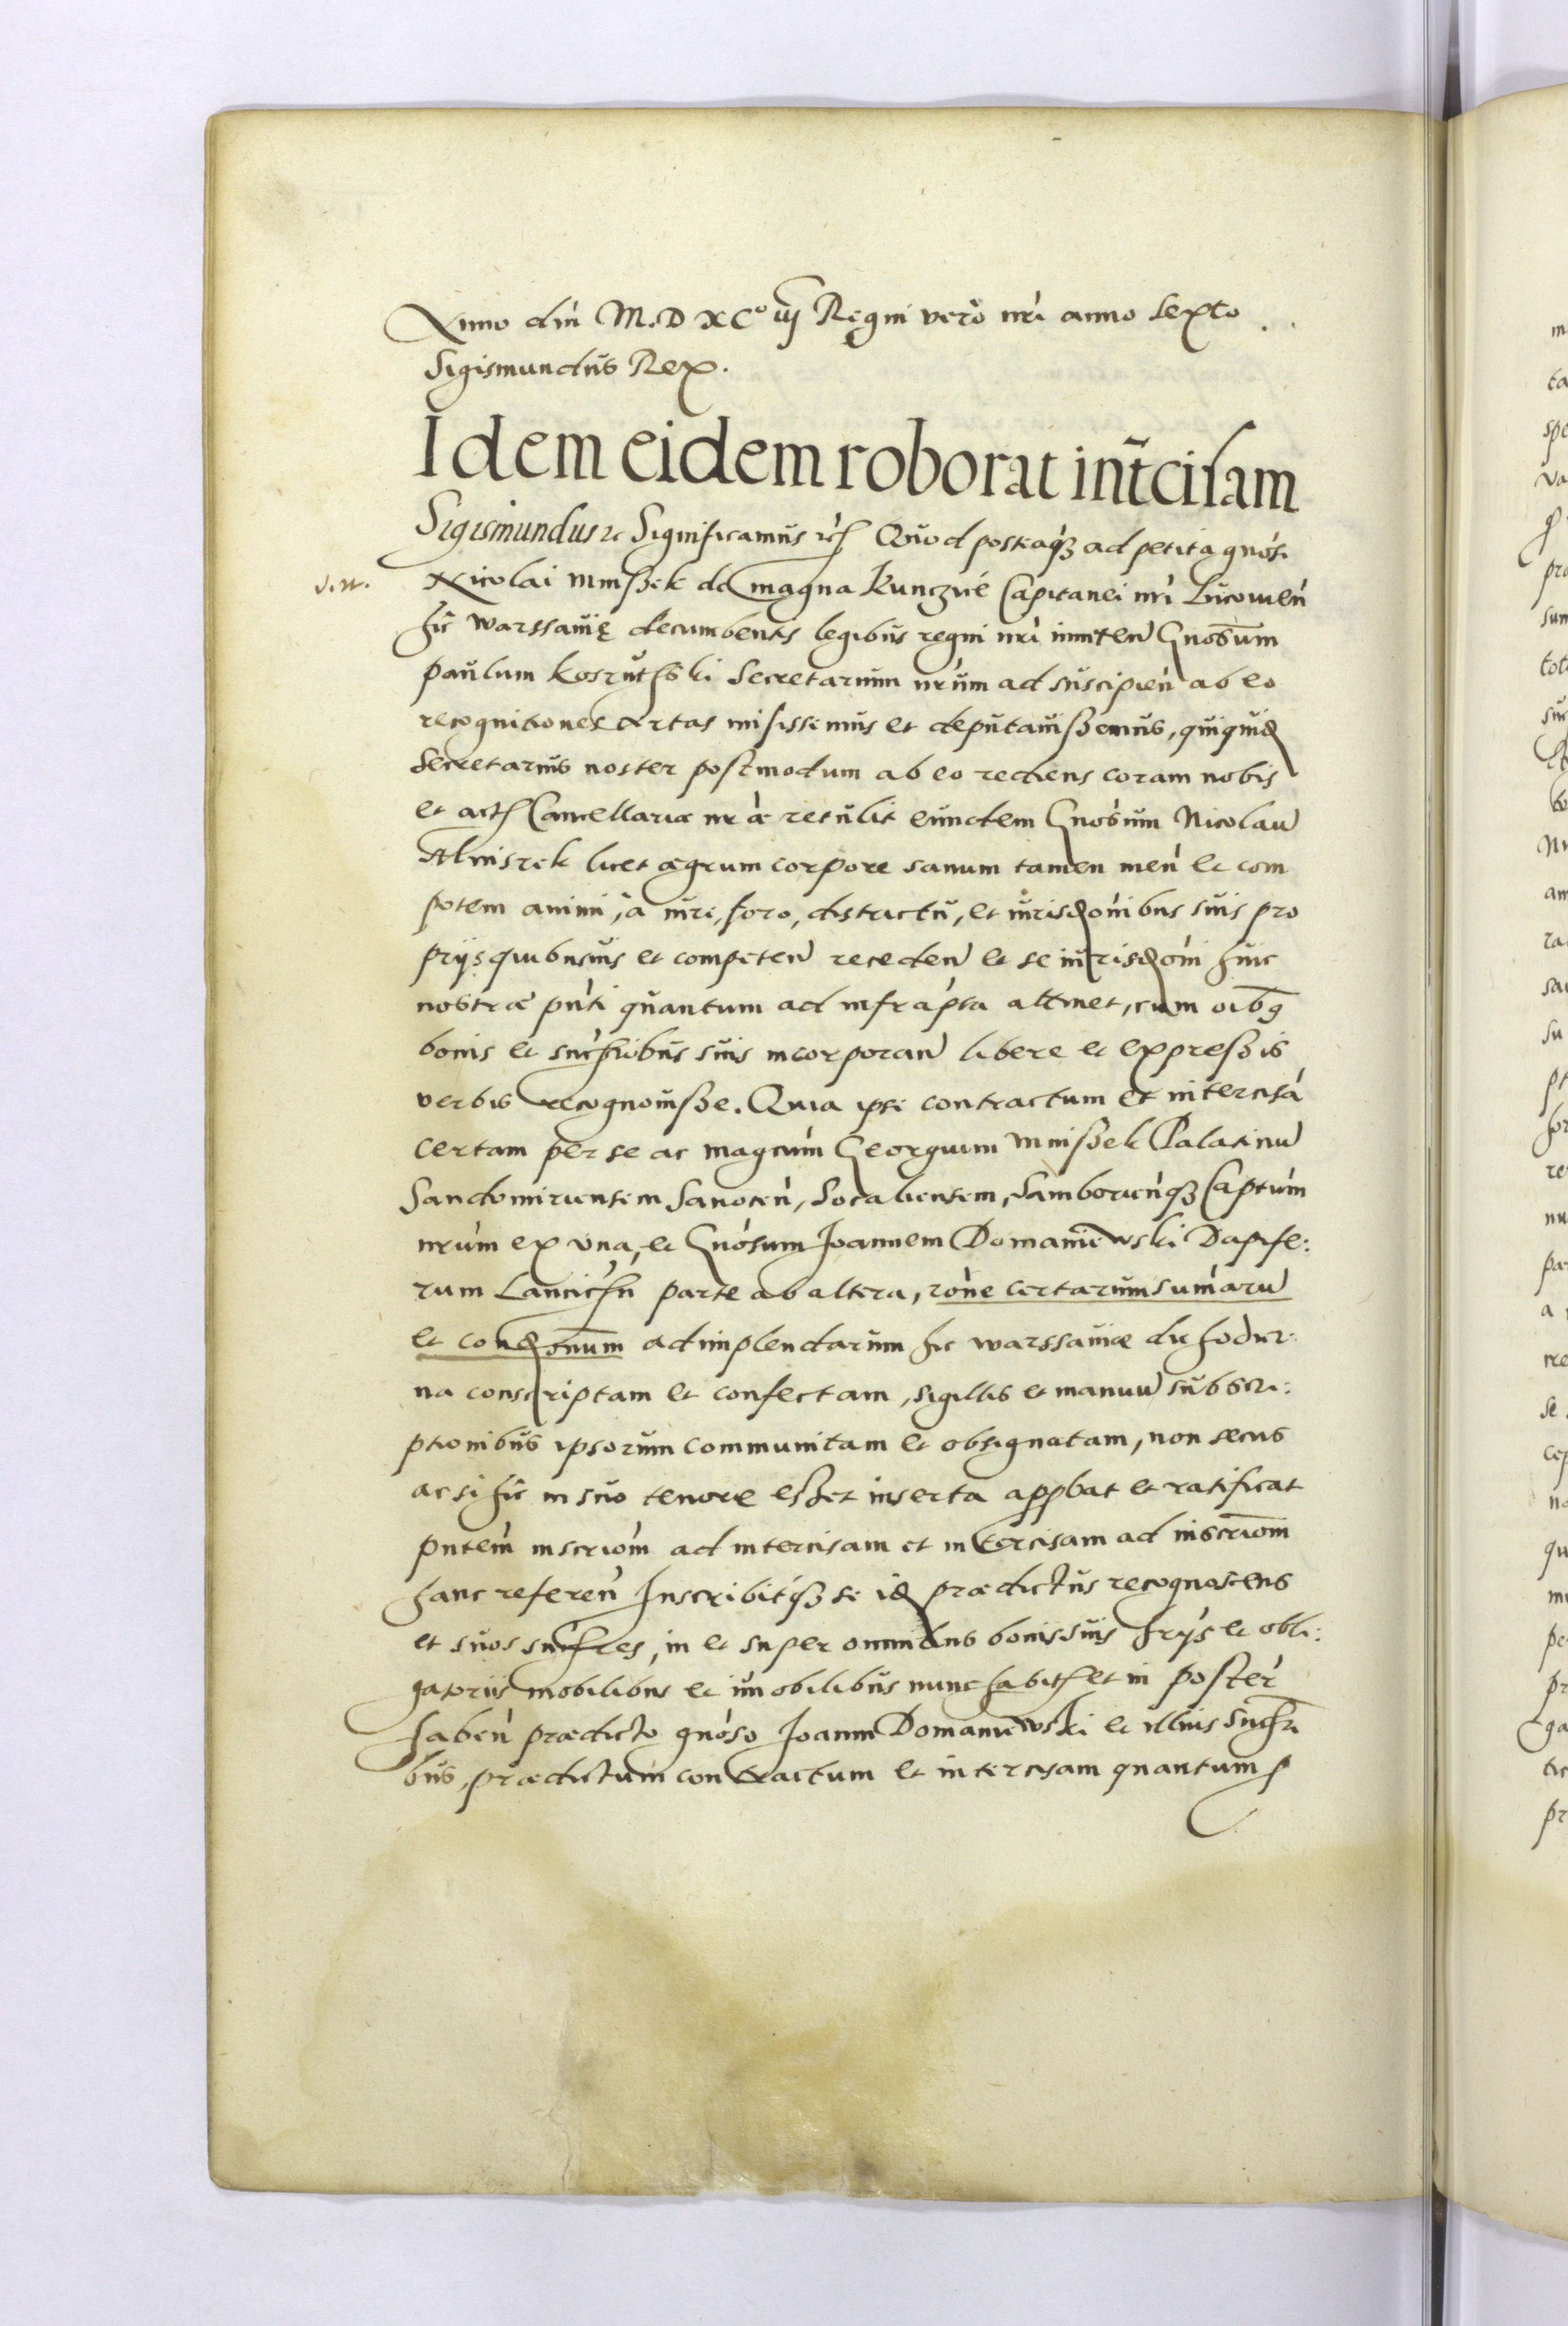 Anno dni M.D XC° iij Regni vero nri anno sexto
Sigismundus Rex.
Idem eidem roborat intcisam
Sigismundus &c Significamus &c Quod posteaq3 ad petita gnosi
Nicolai Mnissek de magna Kunczicé Capitanei nri Lucovien
hic Warssavię decumbentis legibus regni nri innten Gnosum
Paulum Kosrutski Secretarium nrum ad suscipien ab eo
recognitiones certas misissemus et deputavissemus, quiquid
Secretarius noster postmodum ab eo rediens coram nobis
et actis Cancellariæ nræ retulit eundem Gnosum Nicolau
Mniszek licet ægrum corpore sanum tamen men et com
potem animi, à iure, foro, districtu, et iurisdonibus suis pro
priis quibusvis et competen receden et se iurisdoni huic
nostræ pnti quantum ad infrapta attinet, cum oibq
bonis et succribus suis incorporan libere et expressis
verbis recognovisse. Quia ipse contractum et intercisa
certam per se ac magcum Georgium Mnissek Palatinu
Sandomiriensem Sanocen, Socaliensem, Samborienq3 Captum
nrum ex una, et Gnosum Joannem Domaniewski Dapife:
rum Lancicien parte ab altera, rone certarum sumaru
et condonum adimplendarum hic Warssaviæ die hodier:
na conscriptam et confectam, sigillis et manuu subscri:
ptionibus ipsorum communitam et obsignatam, non secus
ac si hic in suo tenore esset inserta appbat et ratificat
pntem inscriom ad intercisam et intercisam ad inscriom
hanc referen Inscribitq3 se id prædictus recognoscens
et suos succres, in et super omnibus bonis suis hrys et obli:
gatoriis mobilibus et imobilibus nunc habitis et in poster
haben prædicto gnoso Joanni Domaniewski et illius succri
bus, prædictum contractum et intercisam quantum p